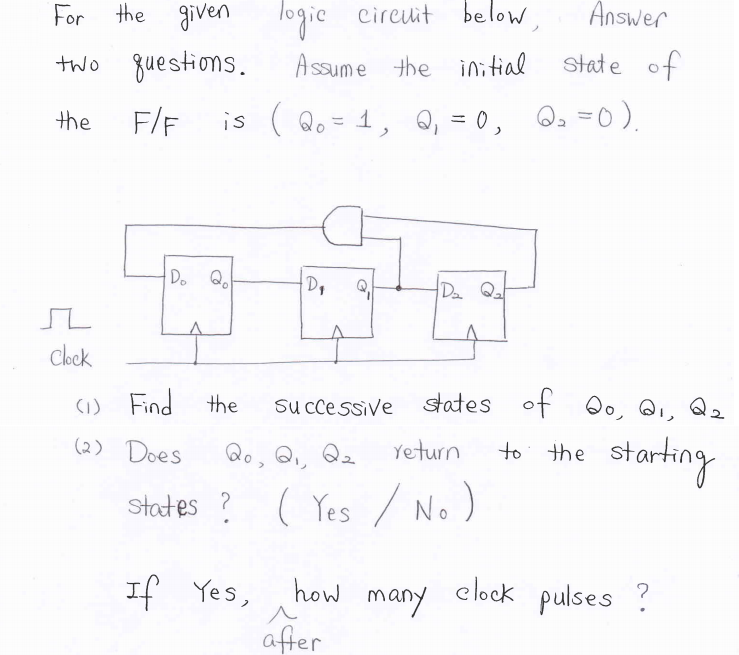 For the given logic circuit below, Answer
two questions. Assume the initial state of
the F/F is ( Q₀ = 1, Q₁ = 0, Q₂ = 0 ).
D₀ Q₀ D₁ Q₁ D₂ Q₂
Clock
(1) Find the successive states of Q₀, Q₁, Q₂
(2) Does Q₀, Q₁, Q₂ return to the starting
states ? ( Yes / No )
If Yes, how many clock pulses ?
after